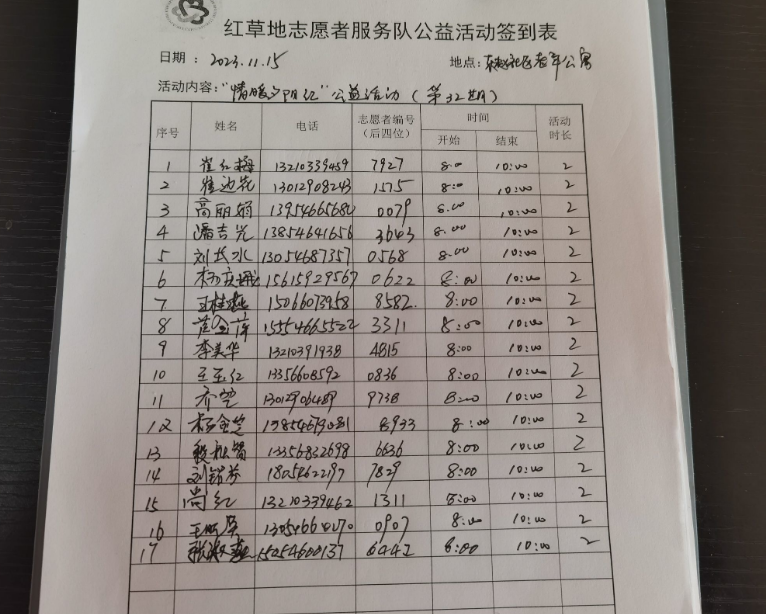 红草地志愿者服务队公益活动签到表
日期：2023.11.15 地点：社区老年公寓
活动内容："情暖夕阳红"公益活动（第32期）
序号 姓名 电话 志愿者编号（后四位） 时间 开始 结束 活动时长
1 崔红梅 13210339459 7927 8:00 10:00 2
2 崔迎花 13012908243 1575 8:00 10:00 2
3 高丽娟 13954665680 0079 8:00 10:00 2
4 潘吉光 13854641656 3643 8:00 10:00 2
5 刘长水 13054687357 0568 8:00 10:00 2
6 杨庆 15615929567 0622 8:00 10:00 2
7 王桂燕 15066073958 8582 8:00 10:00 2
8 萍 15554665522 3311 8:00 10:00 2
9 李美华 13210391938 4815 8:00 10:00 2
10 王玉红 13356608592 0836 8:00 10:00 2
11 乔 13012906489 9738 8:00 10:00 2
12 杨金芝 8933 8:00 10:00 2
13 13356832698 6636 8:00 10:00 2
14 刘 18054622197 7829 8:00 10:00 2
15 尚红 13210339462 1311 8:00 10:00 2
16 王 0907 8:00 10:00 2
17 张 15054600137 6442 8:00 10:00 2